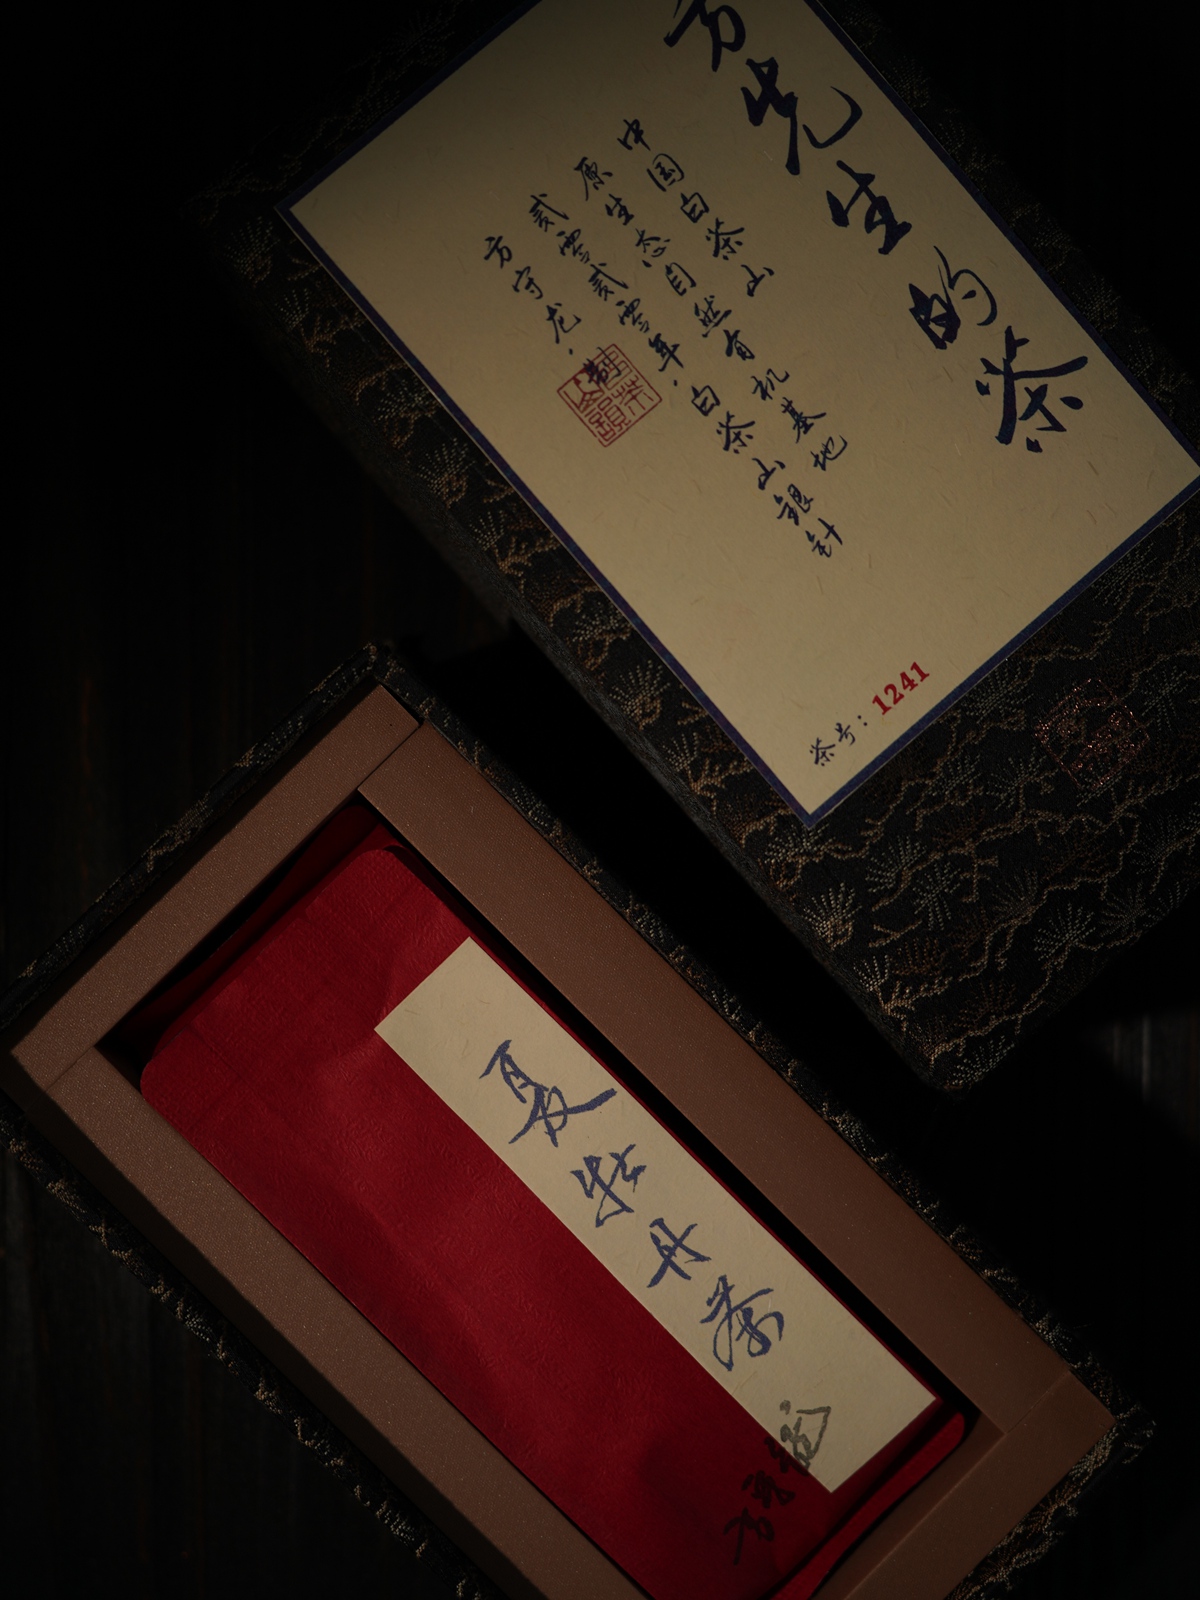 方先生的茶
中国白茶山
原生态自然有机基地
贰零贰零年·白茶山銀针
方守龙·制
茶号：1241
夏牡丹茶